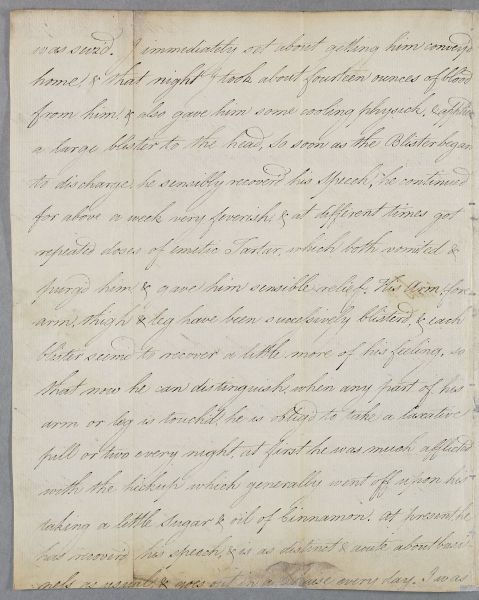 was seiz'd. I immediately set about getting him convey'd
home, & that night I took about fourteen ounces of blood
from him, & also gave him some cooling physick, & applied
a large blister to the head, so soon as the Blister began
to discharge, he sensibly recover'd his speech, he continued
for above a week very feverish, & at different times got
repeated doses of emetic Tartar, which both vomited &
purg'd him, & gave him sensible relief. His Arm, fore
arm, thigh & leg have been successively blister'd, & each
blister seem'd to recover a little more of his feeling, so
that now he can distinguish, when any part of his
arm or leg is touch'd, he is oblig'd to take a laxative
pill or two every night, at first he was much afflicted
with the hickup which generally went off upon his
taking a little Sugar & oil of Cinnamon. at present he
has recover'd his speech, & is as distinct & acute about busi-
as usual & goes out in a chaise every day. I was